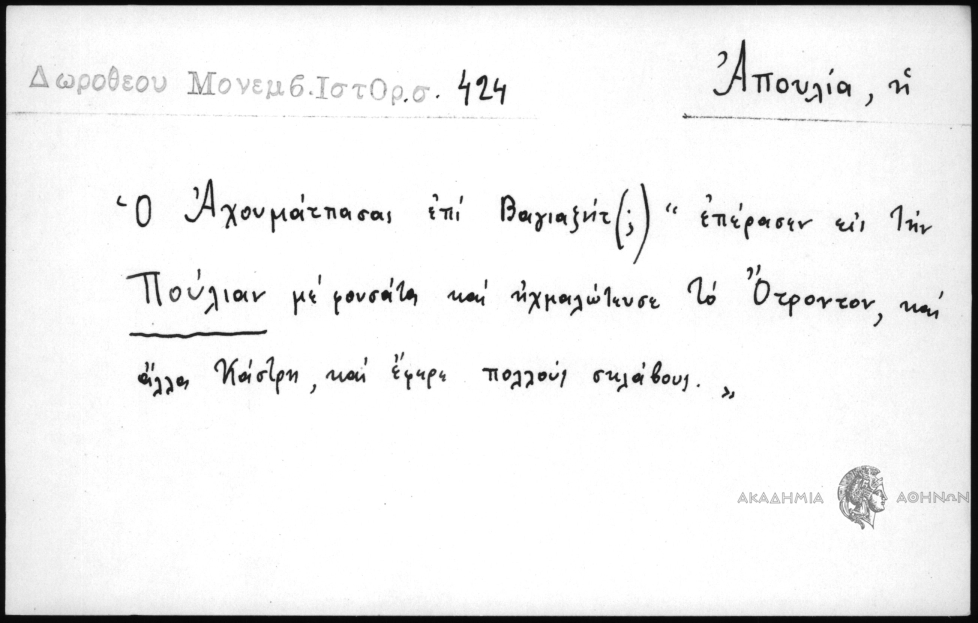 Δωροθεου Μονεμβ.ΙστΟρ.σ. 424
Ἀπουλία, ἡ
Ὁ Ἀχουμάτπασας ἐπί Βαγιαζήτ(;) “ ἐπέρασεν εἰς τήν
Πούλιαν μέ φουσάτα καί ἠχμαλώτευσε τό Ὄτροντον, καί
ἄλλα Κάστρη, καί ἔφερε πολλούς σκλάβους. „
ΑΚΑΔΗΜΙΑ ΑΘΗΝΩΝ